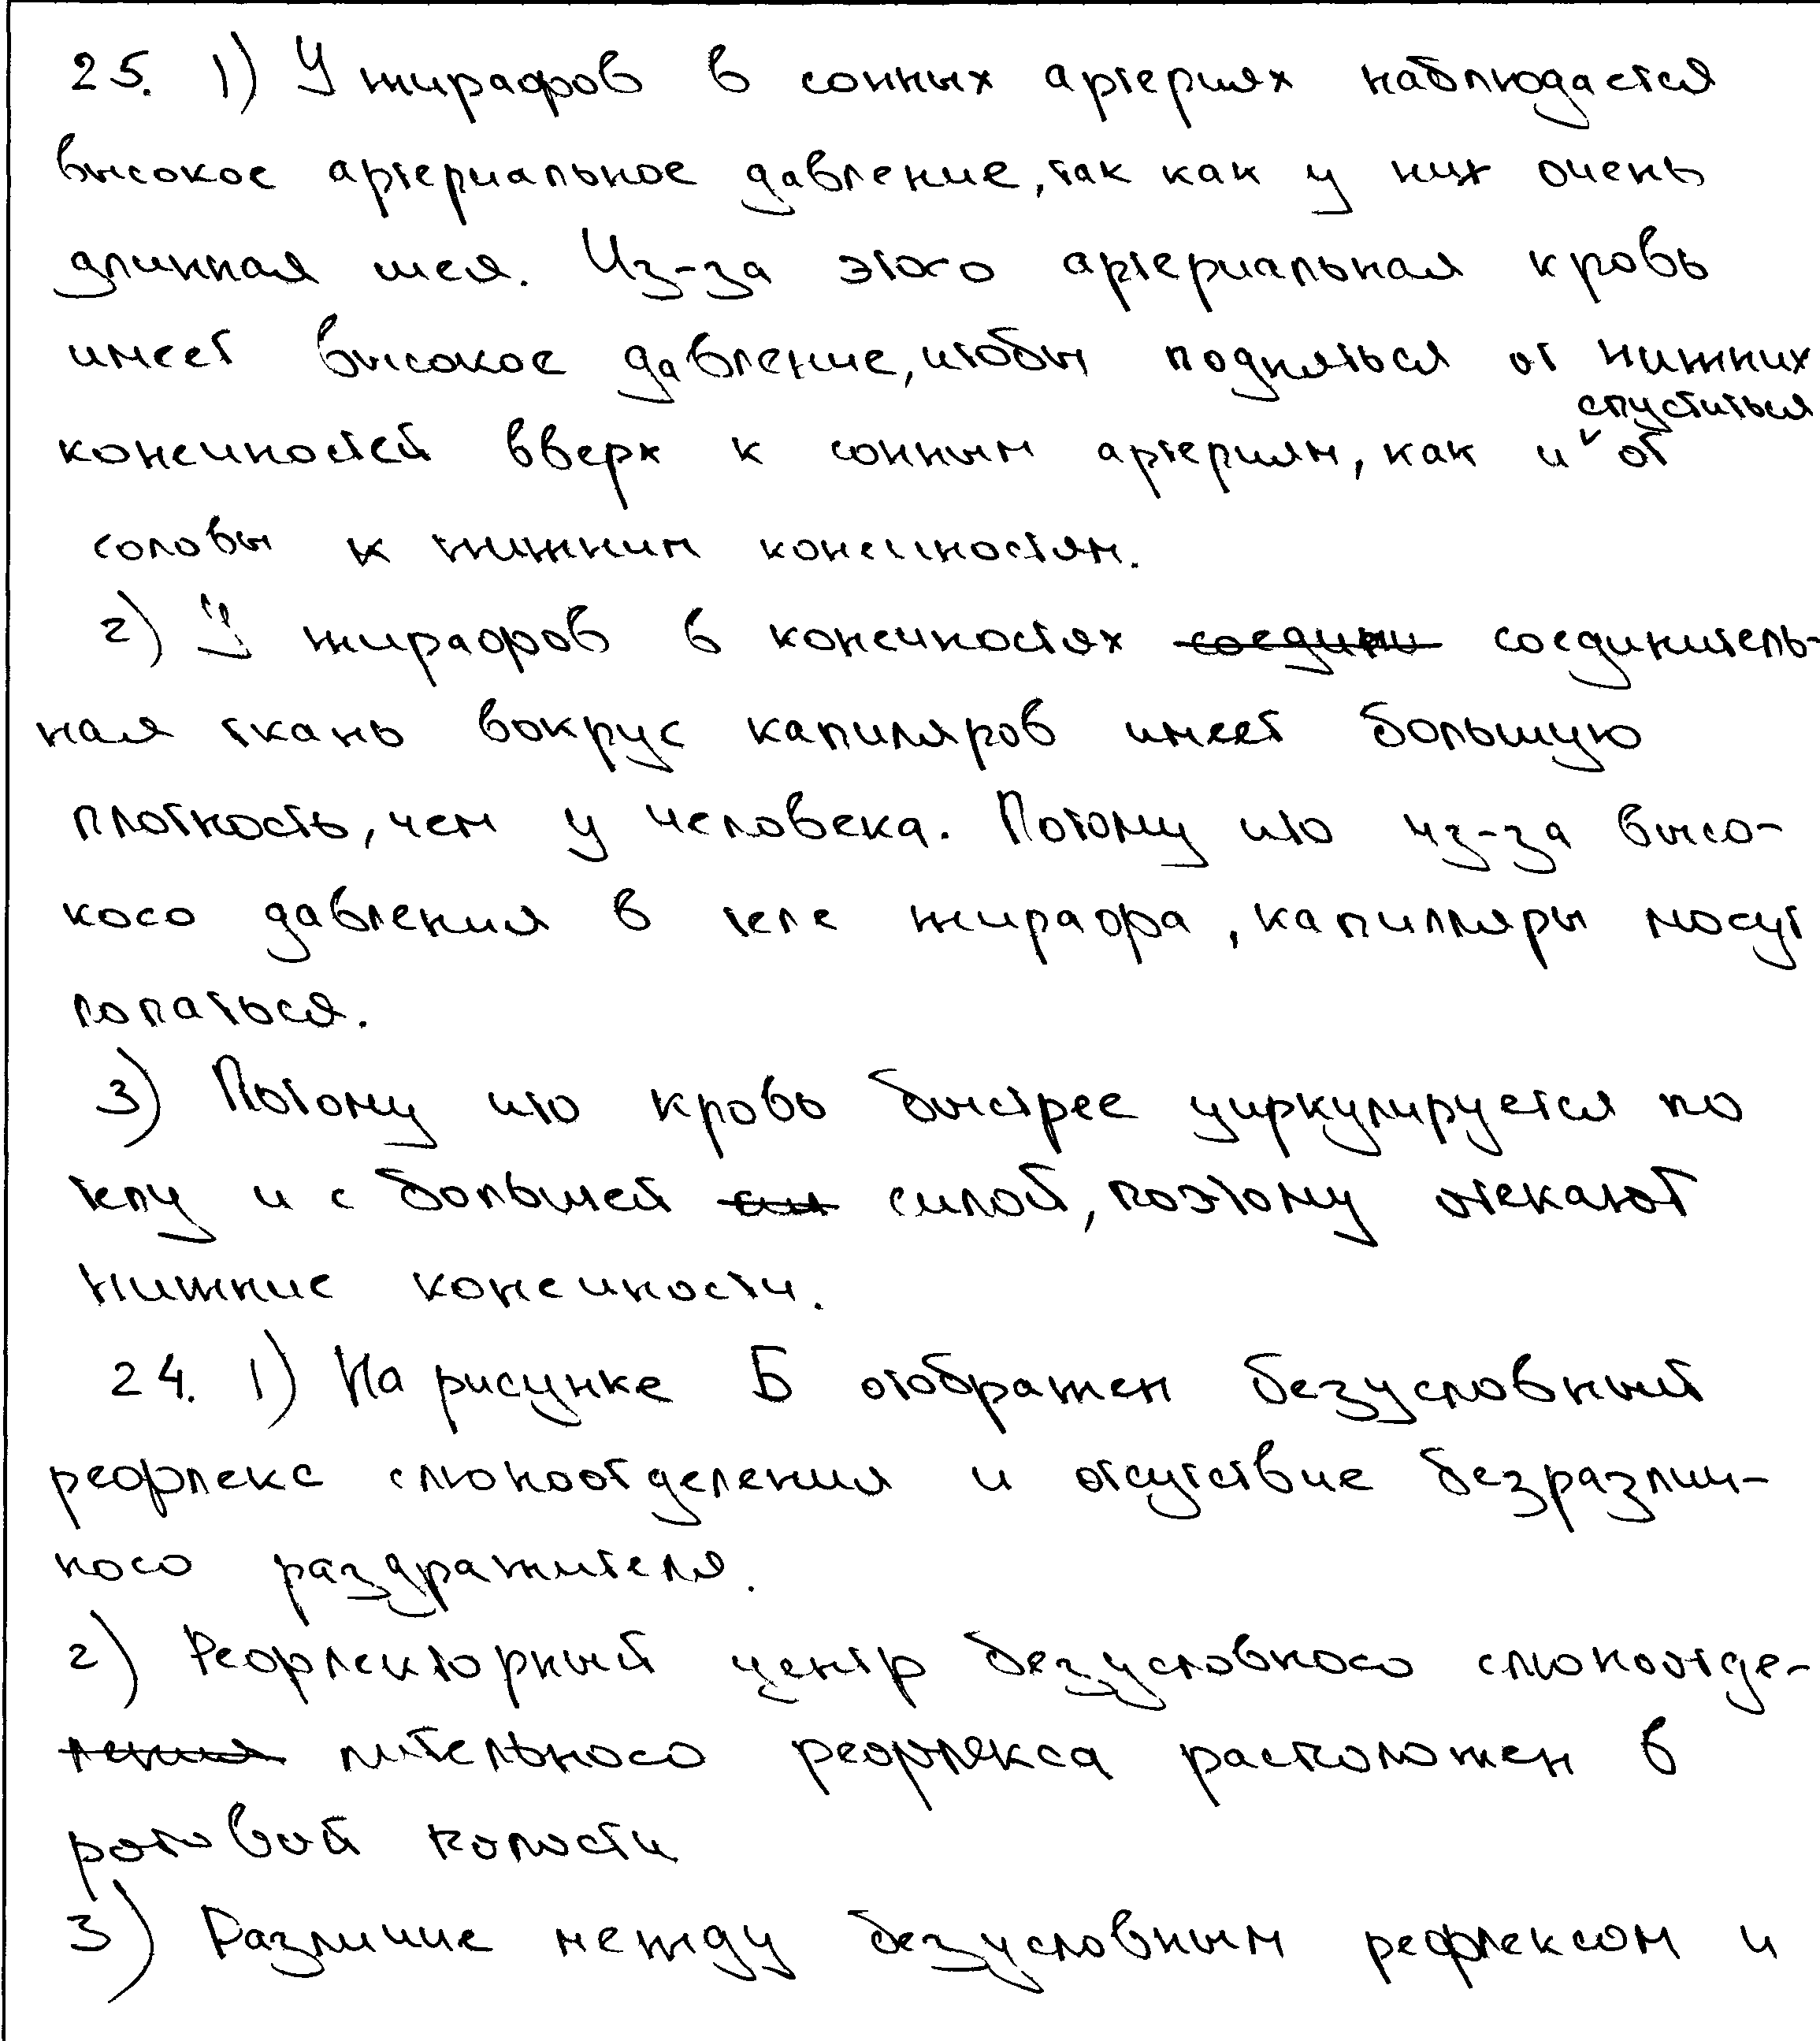 25. 1) У жирафов в сонных артериях наблюдается
высокое артериальное давление, так как у них очень
длинная шея. Из-за этого артериальная кровь
имеет высокое давление, чтобы подняться от нижних
конечностей вверх к сонным артериям, как и спуститься от
головы к нижним конечностям.
2) У жирафов в конечностях соедини соединитель-
ная ткань вокруг капиляров имеет большую
плотность, чем у человека. Потому что из-за высо-
кого давления в теле жирафа, капилляры могут
лопаться.
3) Потому что кровь быстрее циркулируется по
телу и с большей сил силой, поэтому отекают
нижние конечности.
24. 1) На рисунке Б отображен безусловный
рефлекс слюноотделения и отсутствие безразлич-
ного раздражителя.
2) Рефлекторный центр безусловного слюноотде-
ления лительного рефлекса расположен в
ротовой полости
3) Различие между безусловным рефлексом и